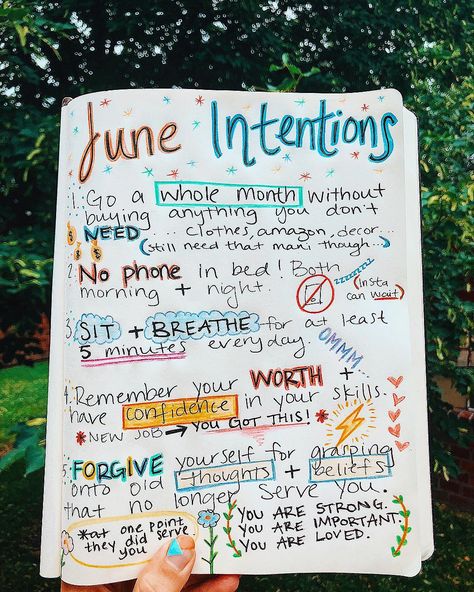 June Intentions
1. Go a whole month without
buying anything you don't
NEED ... clothes, amazon, decor
(still need that mani though...)
2. No phone in bed! Both
morning + night.
(Insta
can wait)
zzzzzzz
3. SIT + BREATHE for at least
5 minutes everyday.
OMMM
4. Remember your WORTH +
have confidence in your skills.
* NEW JOB → YOU GOT THIS! *
5. FORGIVE yourself for grasping
onto old thoughts + beliefs
that no longer serve you.
*at one point
they did serve
you
YOU ARE STRONG.
YOU ARE IMPORTANT.
YOU ARE LOVED.